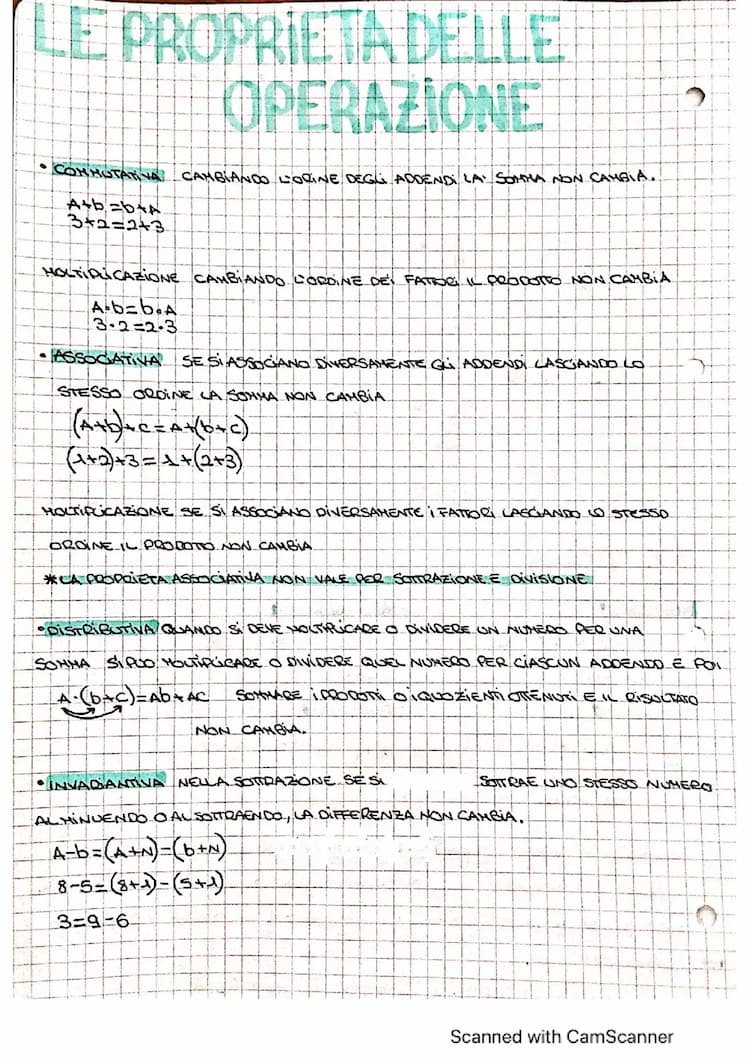 LE PROPRIETA DELLE
OPERAZIONE
• COMMUTATIVA CAMBIANDO L'ORINE DEGLI ADDENDI LA' SOMMA NON CAMBIA.
A+b=b+A
3+2=2+3
MOLTIPLICAZIONE CAMBIANDO L'ORDINE DEI FATTORI IL PRODOTTO NON CAMBIA
A·b=b·A
3·2=2·3
• ASSOCIATIVA SE SI ASSOCIANO DIVERSAMENTE GLI ADDENDI LASCIANDO LO
STESSO ORDINE LA SOMMA NON CAMBIA
(A+b)+c=A+(b+c)
(1+2)+3=1+(2+3)
MOLTIPLICAZIONE SE SI ASSOCIANO DIVERSAMENTE I FATTORI LASCIANDO LO STESSO
ORDINE IL PRODOTTO NON CAMBIA
*LA PROPRIETA ASSOCIATIVA NON VALE PER SOTTRAZIONE E DIVISIONE
• DISTRIBUTIVA QUANDO SI DEVE MOLTIPLICARE O DIVIDERE UN NUMERO PER UNA
SOMMA SI PUO MOLTIPLICARE O DIVIDERE QUEL NUMERO PER CIASCUN ADDENDO E POI
A·(b+c)=Ab+AC SOMMARE I PRODOTTI O I QUOZIENTI OTTENUTI E IL RISULTATO
NON CAMBIA.
• INVARIANTIVA NELLA SOTTRAZIONE SE SI SOTTRAE UNO STESSO NUMERO
AL MINUENDO O AL SOTTRAENDO, LA DIFFERENZA NON CAMBIA.
A-b=(A+N)-(b+N)
8-5=(8+1)-(5+1)
3=9-6
Scanned with CamScanner